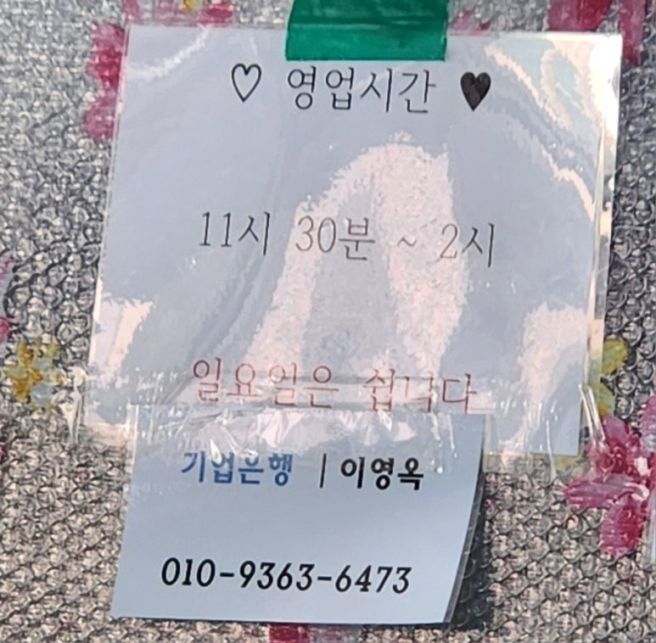 ♡ 영업시간 ♥
11시 30분 ~ 2시
일요일은 쉽니다
기업은행 | 이영옥
010-9363-6473